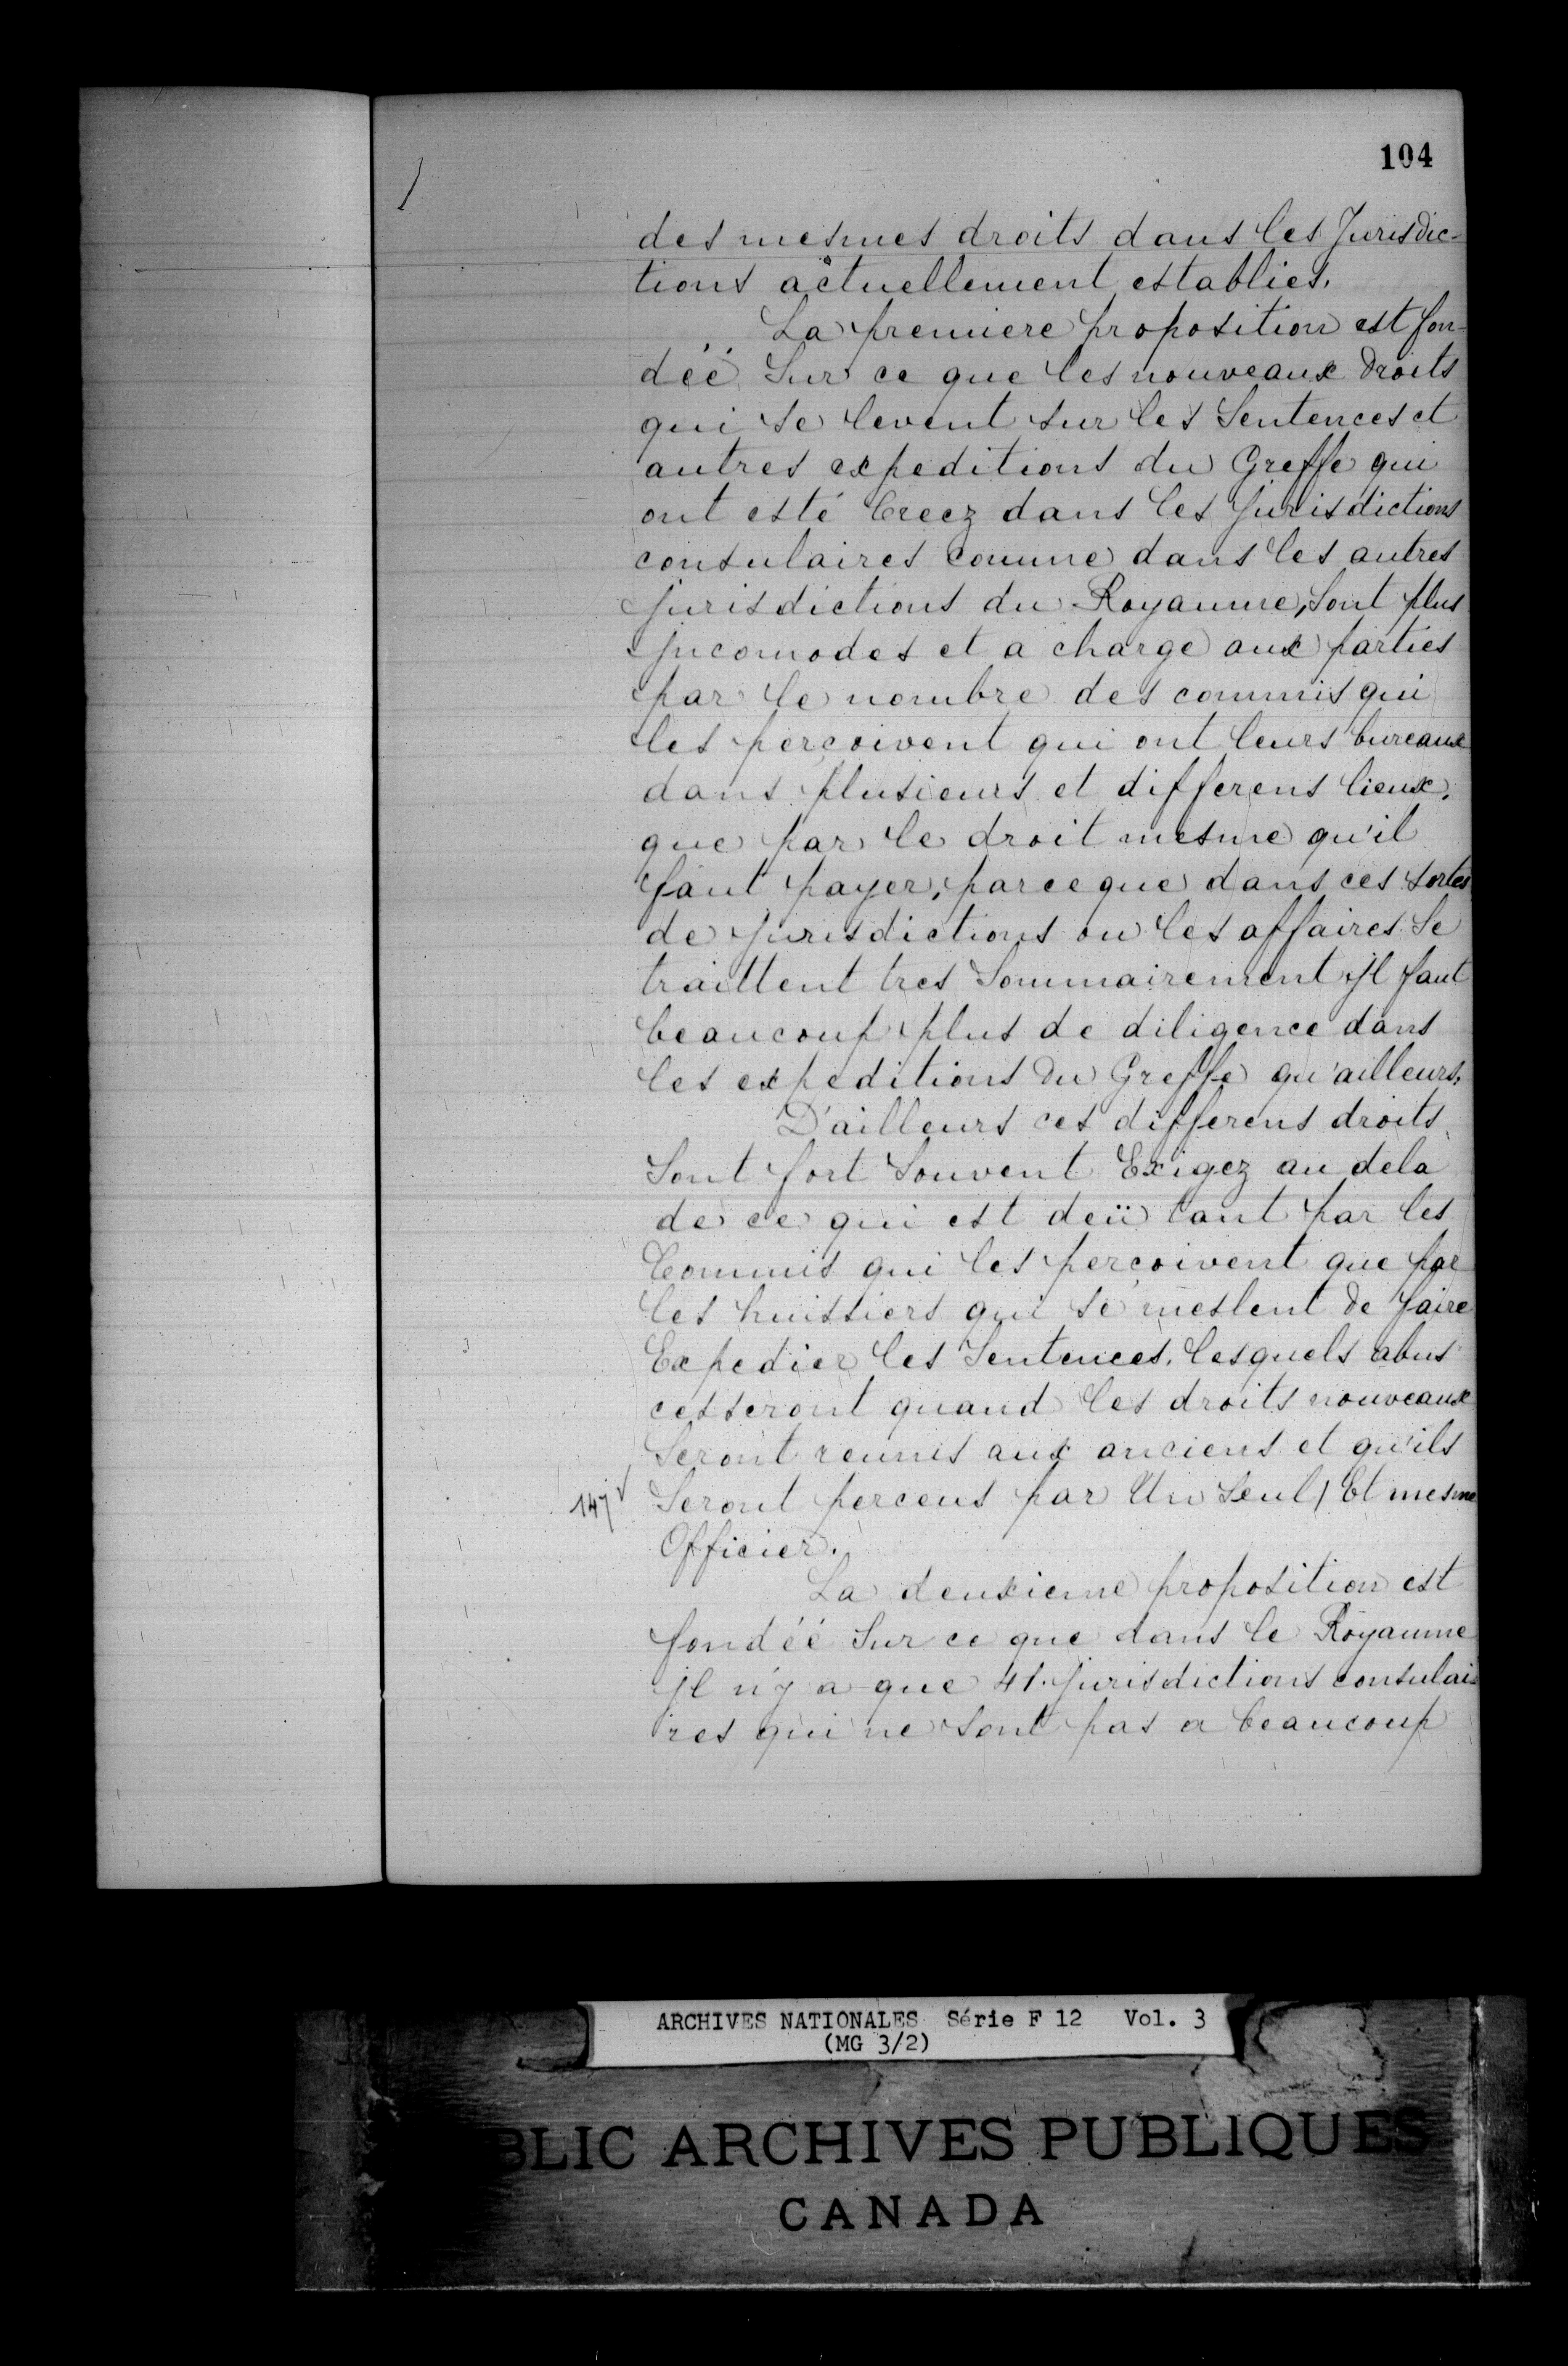 104
des mesmes droits dans les Jurisdic-
tions actuellement establies.
La premiere proposition est fon-
déé Sur ce que les nouveaux droits
qui se levent sur les Sentences et
autres expeditions du Greffe qui
ont esté Creez dans les Jurisdictions
consulaires comme dans les autres
Jurisdictions du Royaume, Sont plus
Jncomodes et a charge aux parties
par le nombre des commis qui
les perçoivent qui ont leurs bureaux
dans plusieurs et differens lieux,
que par le droit mesme qu'il
faut payer, parceque dans ces sortes
de Jurisdictions ou les affaires Se
traittent tres Sommairement Jl faut
beaucoup plus de diligence dans
les expeditions du Greffe qu'ailleurs.
D'ailleurs ces differens droits
Sont fort Souvent Exigez au dela
de ce qui est deü tant par les
Commis qui les perçoivent que par
les huissiers qui se meslent de faire
Expedier les Sentences. lesquels abus
cesseront quand les droits nouveaux
Seront reunis aux anciens et qu'ils
147 Seront perceus par Un Seul / Et mesme
Officier.
La deuxieme proposition est
fondéé Sur ce que dans le Royaume
Jl n'y a que 41. Jurisdictions consulai-
res qui ne sont pas a beaucoup
ARCHIVES NATIONALES Série F 12 Vol. 3
(MG 3/2)
BLIC ARCHIVES PUBLIQUES
CANADA